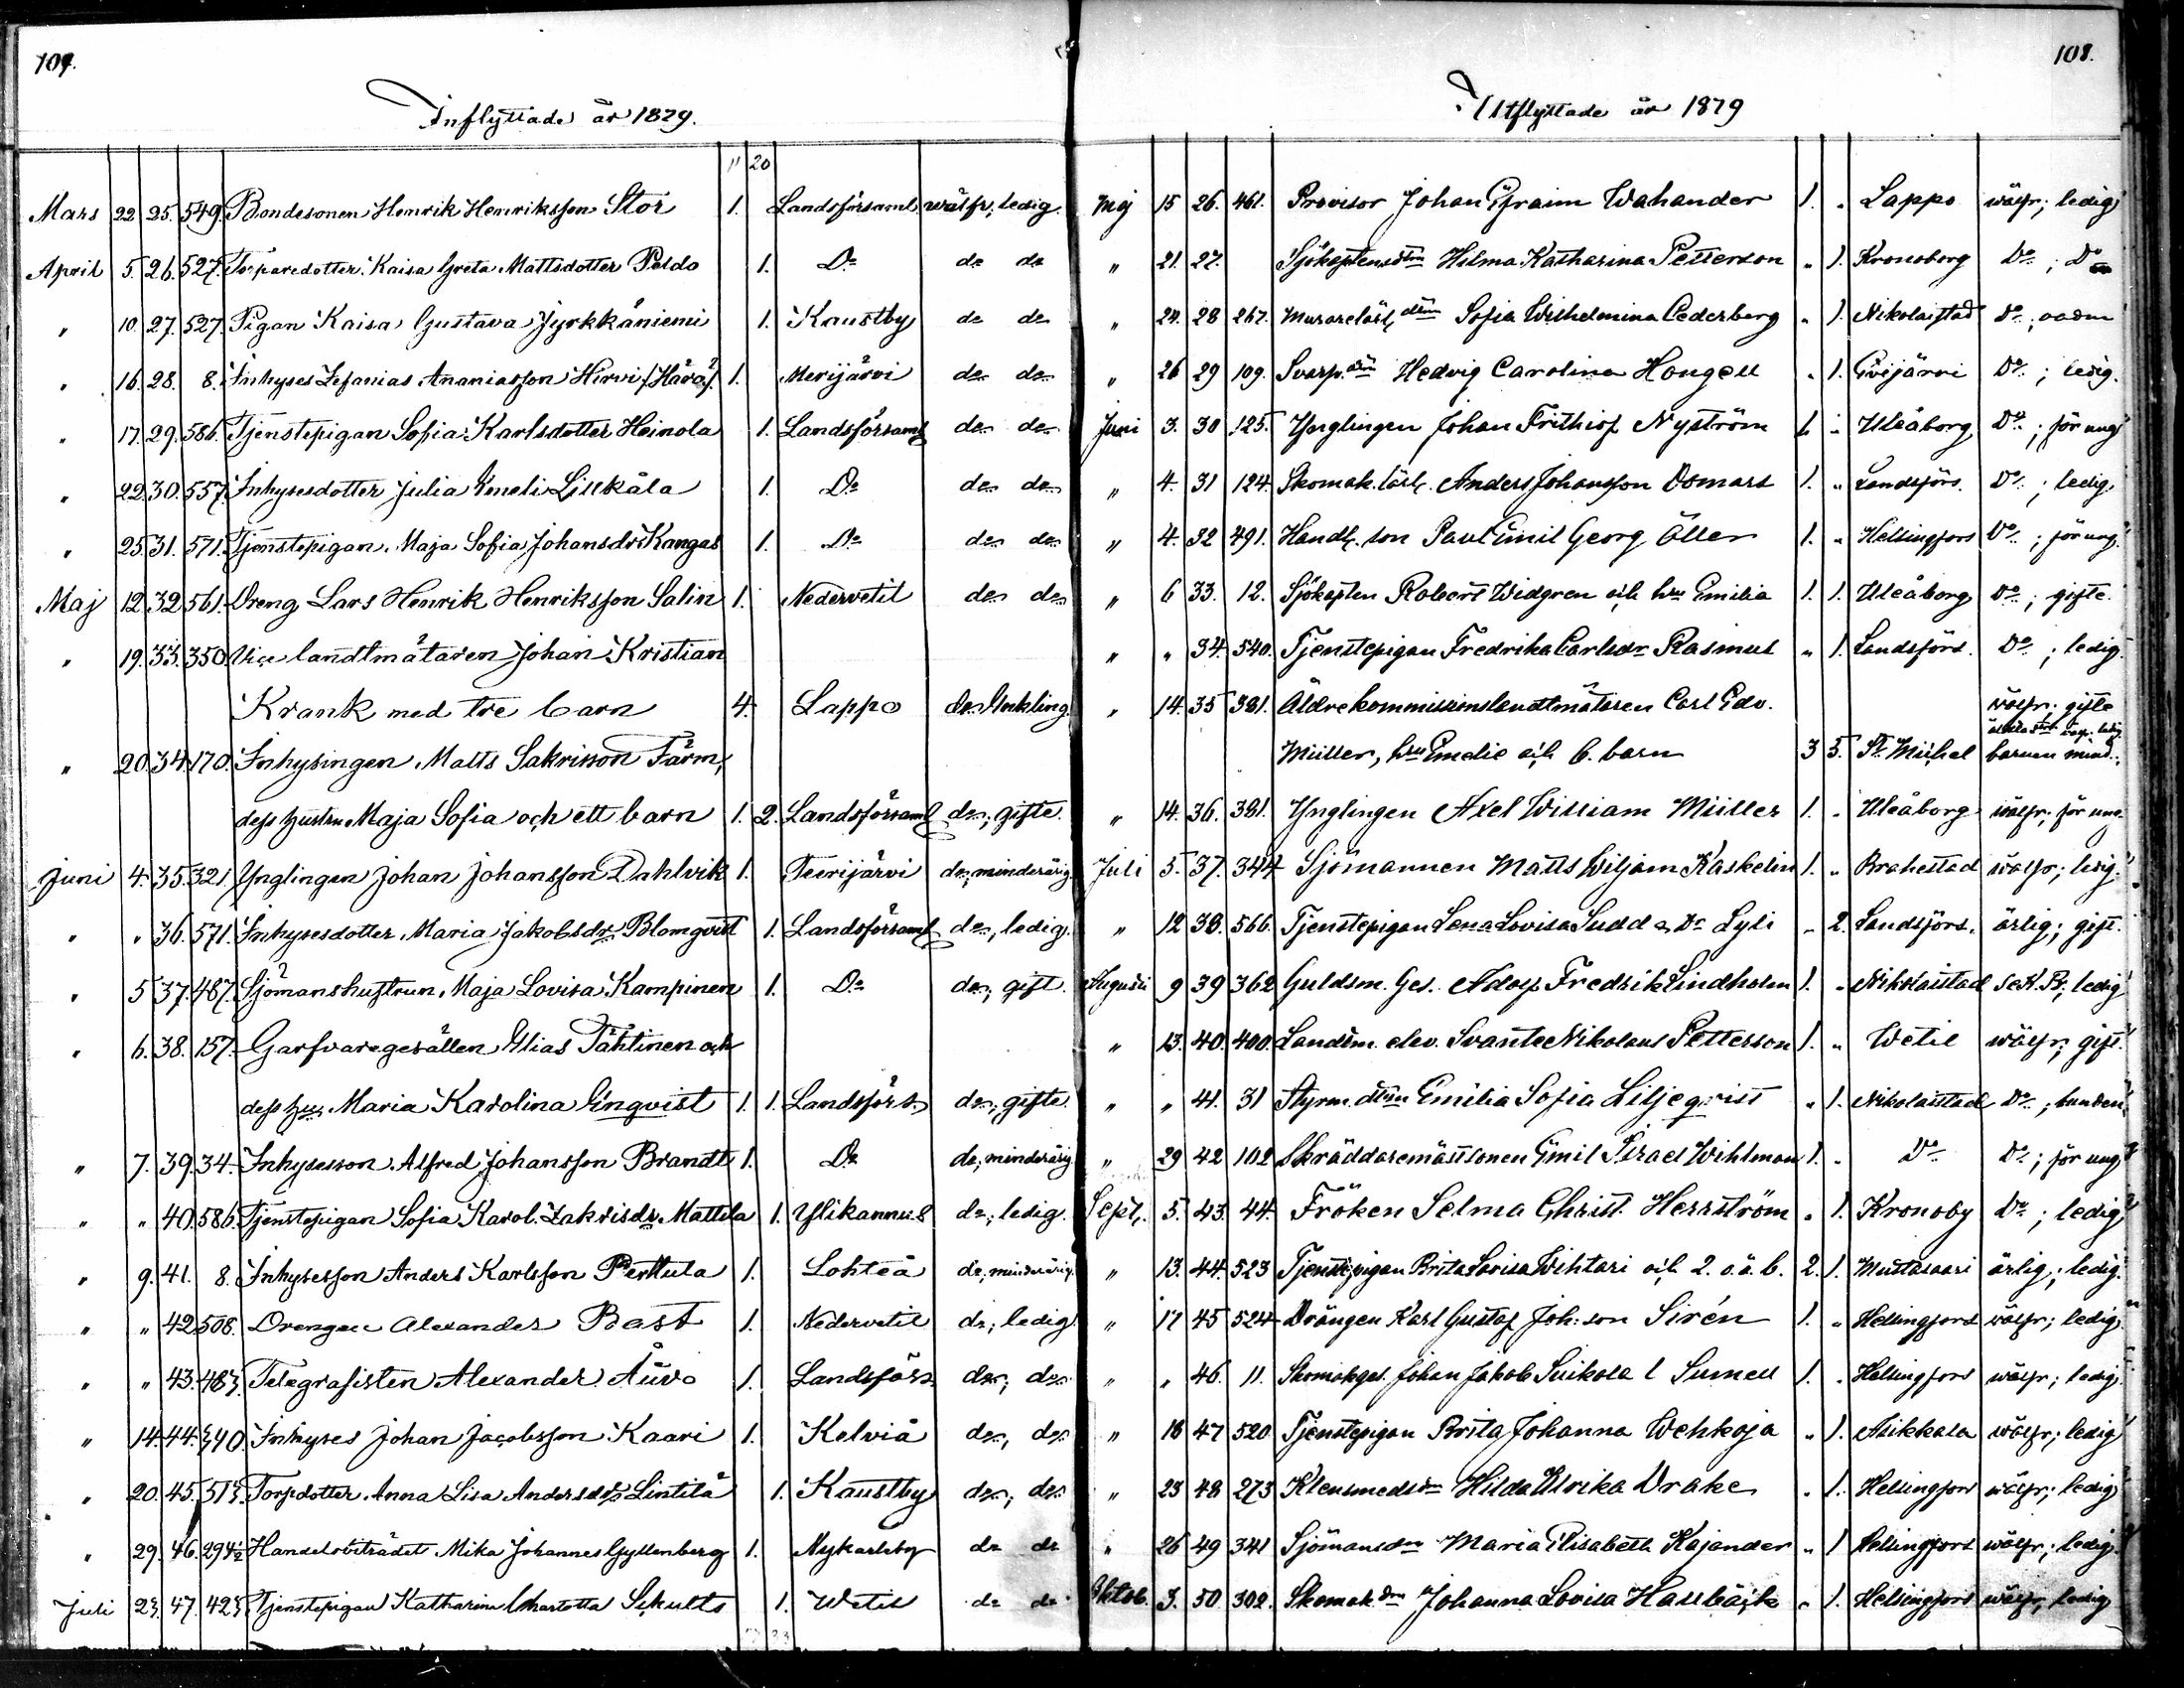 109.
Inflyttade år 1879.
11 20
Mars 22 25. 549. Bondesonen Henrik Henriksson Stor 1. Landsförsaml. wälfr; ledig.
April 5. 26. 527. Torparedotter Kaisa Greta Mattsdotter Peldo 1. Do do do
" 10. 27. 527. Pigan Kaisa Gustava Jyrkkäniemi 1. Kaustby do do
" 16. 28. 8. Inhyses Zefanias Ananiasson Hirvi 1. Merijärvi do do
" 17. 29. 586. Tjenstepigan Sofia Karlsdotter Heinola 1. Landsförsaml do do
" 22. 30. 557. Inhysesdotter Julia Emeli Lillkåla 1. Do do do
" 25. 31. 571. Tjenstepigan Maja Sofia Johansdr Kangas 1. Do do do
Maj 12. 32. 561. Dreng Lars Henrik Henriksson Salin 1. Nedervetil do do
" 19. 33. 350. Vice landtmätaren Johan Kristian
Krank med tre barn 4. Lappo do Enkling.
" 20. 34. 170. Inhysingen Matts Sakrisson Färm,
dess hustru Maja Sofia och ett barn 1. 2. Landsförsaml do; gifte.
Juni 4. 35. 321. Ynglingen Johan Johansson Dahlvik 1. Teerijärvi do; minderårig.
" " 36. 571. Inhysesdotter Maria Jakobsdr Blomqvist 1. Landsförsaml do; ledig.
" 5 37. 487. Sjömanshustrun Maja Lovisa Kampinen 1. Do do; gift.
" 6. 38. 157. Garfvaregesällen Elias Tähtinen och
dess hu. Maria Karolina Enqvist 1. 1. Landsförs. do; gifte.
" 7. 39. 34. Inhysesson Alfred Johansson Brandt 1. Do do; minderårig.
" " 40. 586. Tjenstepigan Sofia Karol. Zakrisdr Mattila 1. Ylikannus do; ledig.
" 9. 41. 8. Inhysesson Anders Karlsson Perttula 1. Lohteå do; minderårig.
" " 42. 508. Drengen Alexander Bast 1. Nedervetil do; ledig.
" " 43. 483. Telegrafisten Alexander Auvo 1. Landsförs. do; do
" 14. 44. 340. Inhyses Johan Jacobsson Kaari 1. Kelviå do; do
" 20. 45. 513. Torpdotter Anna Lisa Andersdr Lintilä 1. Kaustby do; do
" 29. 46. 294½ Handelsbiträdet Mika Johannes Gyllenberg 1. Nykarleby do do
Juli 23. 47. 423. Tjenstepigan Katharina Charlotta Schults 1. Wetil do do
108.
Utflyttade år 1879
Maj 15 26. 461. Provisor Johan Efraim Wahander 1. " Lappo wälfr; ledig
" 21. 27. Sjökaptensdtrn Hilma Katharina Petterson " 1. Kronoborg Do; Do
" 24. 28 267. Murarelärl. dtrn Sofia Wilhelmina Cederberg " 1. Nikolaistad Do;
" 26 29 109. Svarfv. drn Hedvig Carolina Hongell " 1. Evijärvi Do; ledig.
Juni 3. 30 125. Ynglingen Johan Frithiof Nyström 1. " Uleåborg Do; för ung
" 4. 31 124. Skomak. lärl. Anders Johansson Osmars 1. " Landsförs. Do; ledig.
" 4. 32 491. Handl. son Paul Emil Georg Öller 1. " Helsingfors Do; för ung.
" 6 33. 12. Sjökapten Robert Widgren och hu Emilia 1. 1. Uleåborg Do; gifte.
" " 34. 540. Tjenstepigan Fredrika Carlsdr Rasmus " 1. Landsförs. Do; ledig.
" 14. 35 381. Äldre kommissionslandtmätaren Carl Edv. wälfr; gifte
Müller, hu Emelie och 6. barn 3 5. St. Michel barnen mind.
" 14. 36. 381. Ynglingen Axel William Müller 1. " Uleåborg wälfr; för ung
Juli 5. 37. 344 Sjömannen Matts Wiljam Kaskelin 1. " Brahestad wälfr; ledig.
" 12 38. 566. Tjenstepigan Lena Lovisa Sudd & Dr Lyli " 2. Landsförs. ärlig; gift.
Augusti 9 39 362 Guldsm. Ges. Adolf Fredrik Lindholm 1. " Nikolaistad ledig
" 13. 40. 400. Landtm. elev. Svante Nikolaus Petterson 1. " Wetil wälfr; gift.
" " 41. 31 Styrm. dtrn Emilia Sofia Liljeqvist " 1. Nikolaistad Do;
" 29 42 102 Skräddaremästsonen Emil Israel Wihlman 1. " Do Do; för ung
Sept. 5. 43. 44. Fröken Selma Christ. Herrström " 1. Kronoby Do; ledig
" 13. 44. 523 Tjenstepigan Brita Lovisa Wihtari och 2. o.ä. b. 2. 1. Mustasaari ärlig; ledig.
" 17 45 524 Drängen Karl Gustaf Joh: son Sirén 1. " Helsingfors wälfr; ledig.
" " 46. 11. Skomakges. Johan Jakob Suikola l Sumell 1. " Helsingfors wälfr; ledig.
" 18 47 520 Tjenstepigan Brita Johanna Wehkoja " 1. Asikkala wälfr; ledig
" 23 48 273 Klensmedsdrn Hilda Ulrika Drake " 1. Helsingfors wälfr; ledig
" 26 49 341 Sjömansdrn Maria Elisabeth Kajander " 1 Helsingfors wälfr; ledig.
Oktob. 3. 50 302. Skomak. drn Johanna Lovisa Hallbäck " 1. Helsingfors wälfr; ledig